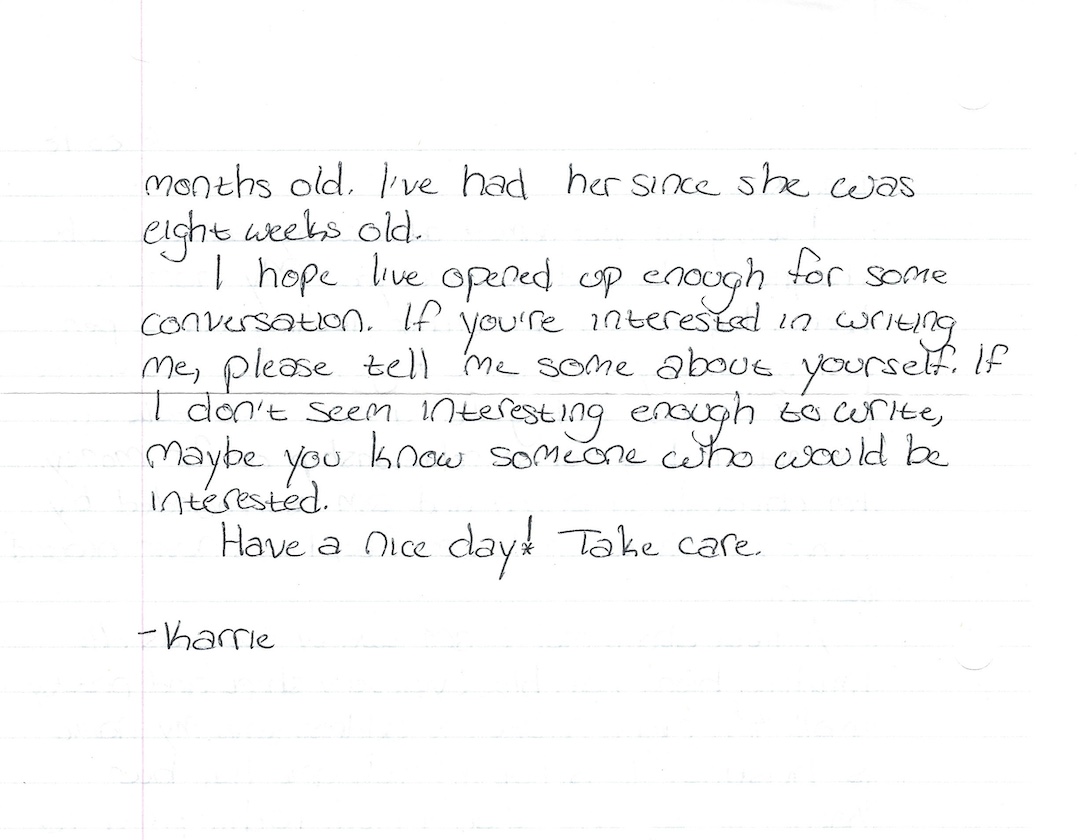 months old. I've had her since she was
eight weeks old.
I hope I've opened up enough for some
conversation. If you're interested in writing
me, please tell me some about yourself. If
I don't seem interesting enough to write,
maybe you know someone who would be
interested.
Have a nice day! Take care.
-Karrie